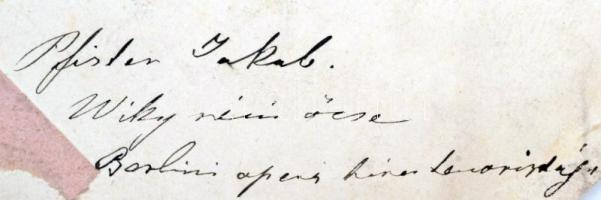 Pfister Jakab.
Wiky néni öcse
Berlini opera híres tenoristája